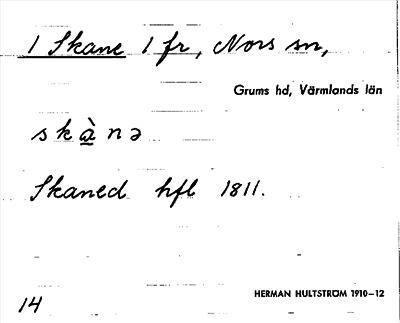 1 Skane 1 fr, Nors sn,
Grums hd, Värmlands län
skànə
Skaned hfl 1811.
HERMAN HULTSTRÖM 1910–12
14